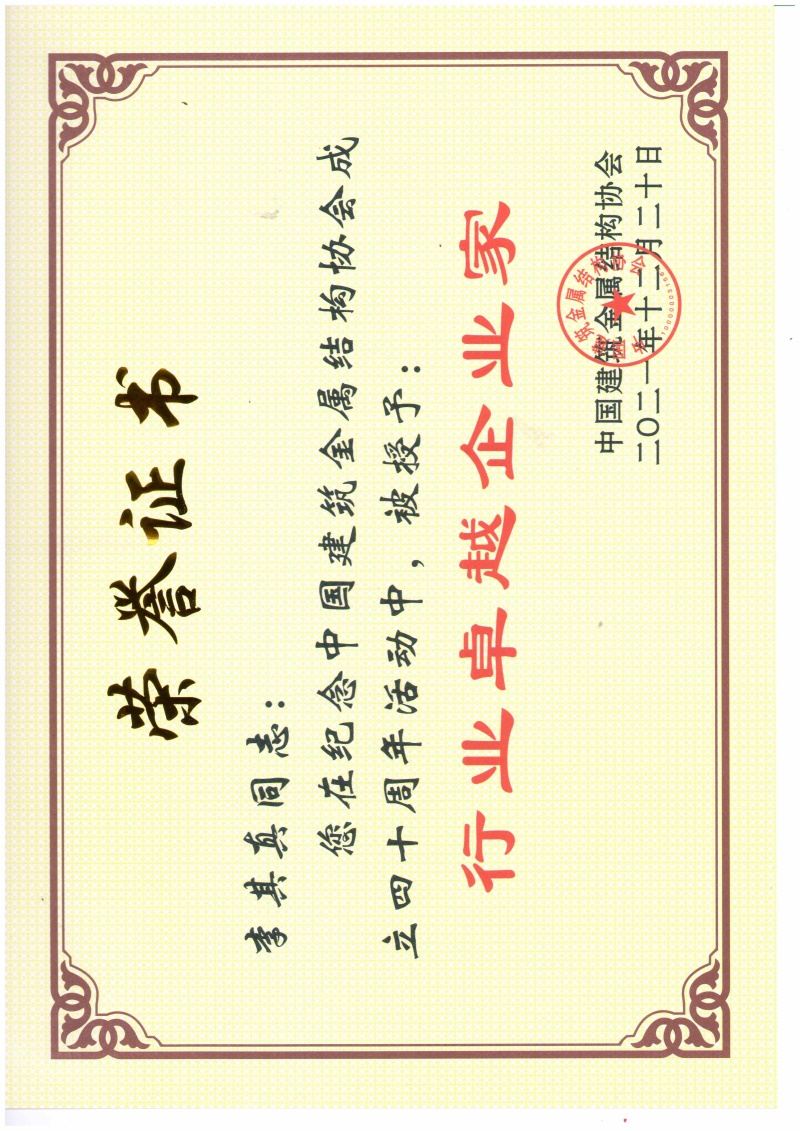 荣誉证书
李其真同志：
您在纪念中国建筑金属结构协会成
立四十周年活动中，被授予：
行业卓越企业家
中国建筑金属结构协会
二〇二一年十二月二十日